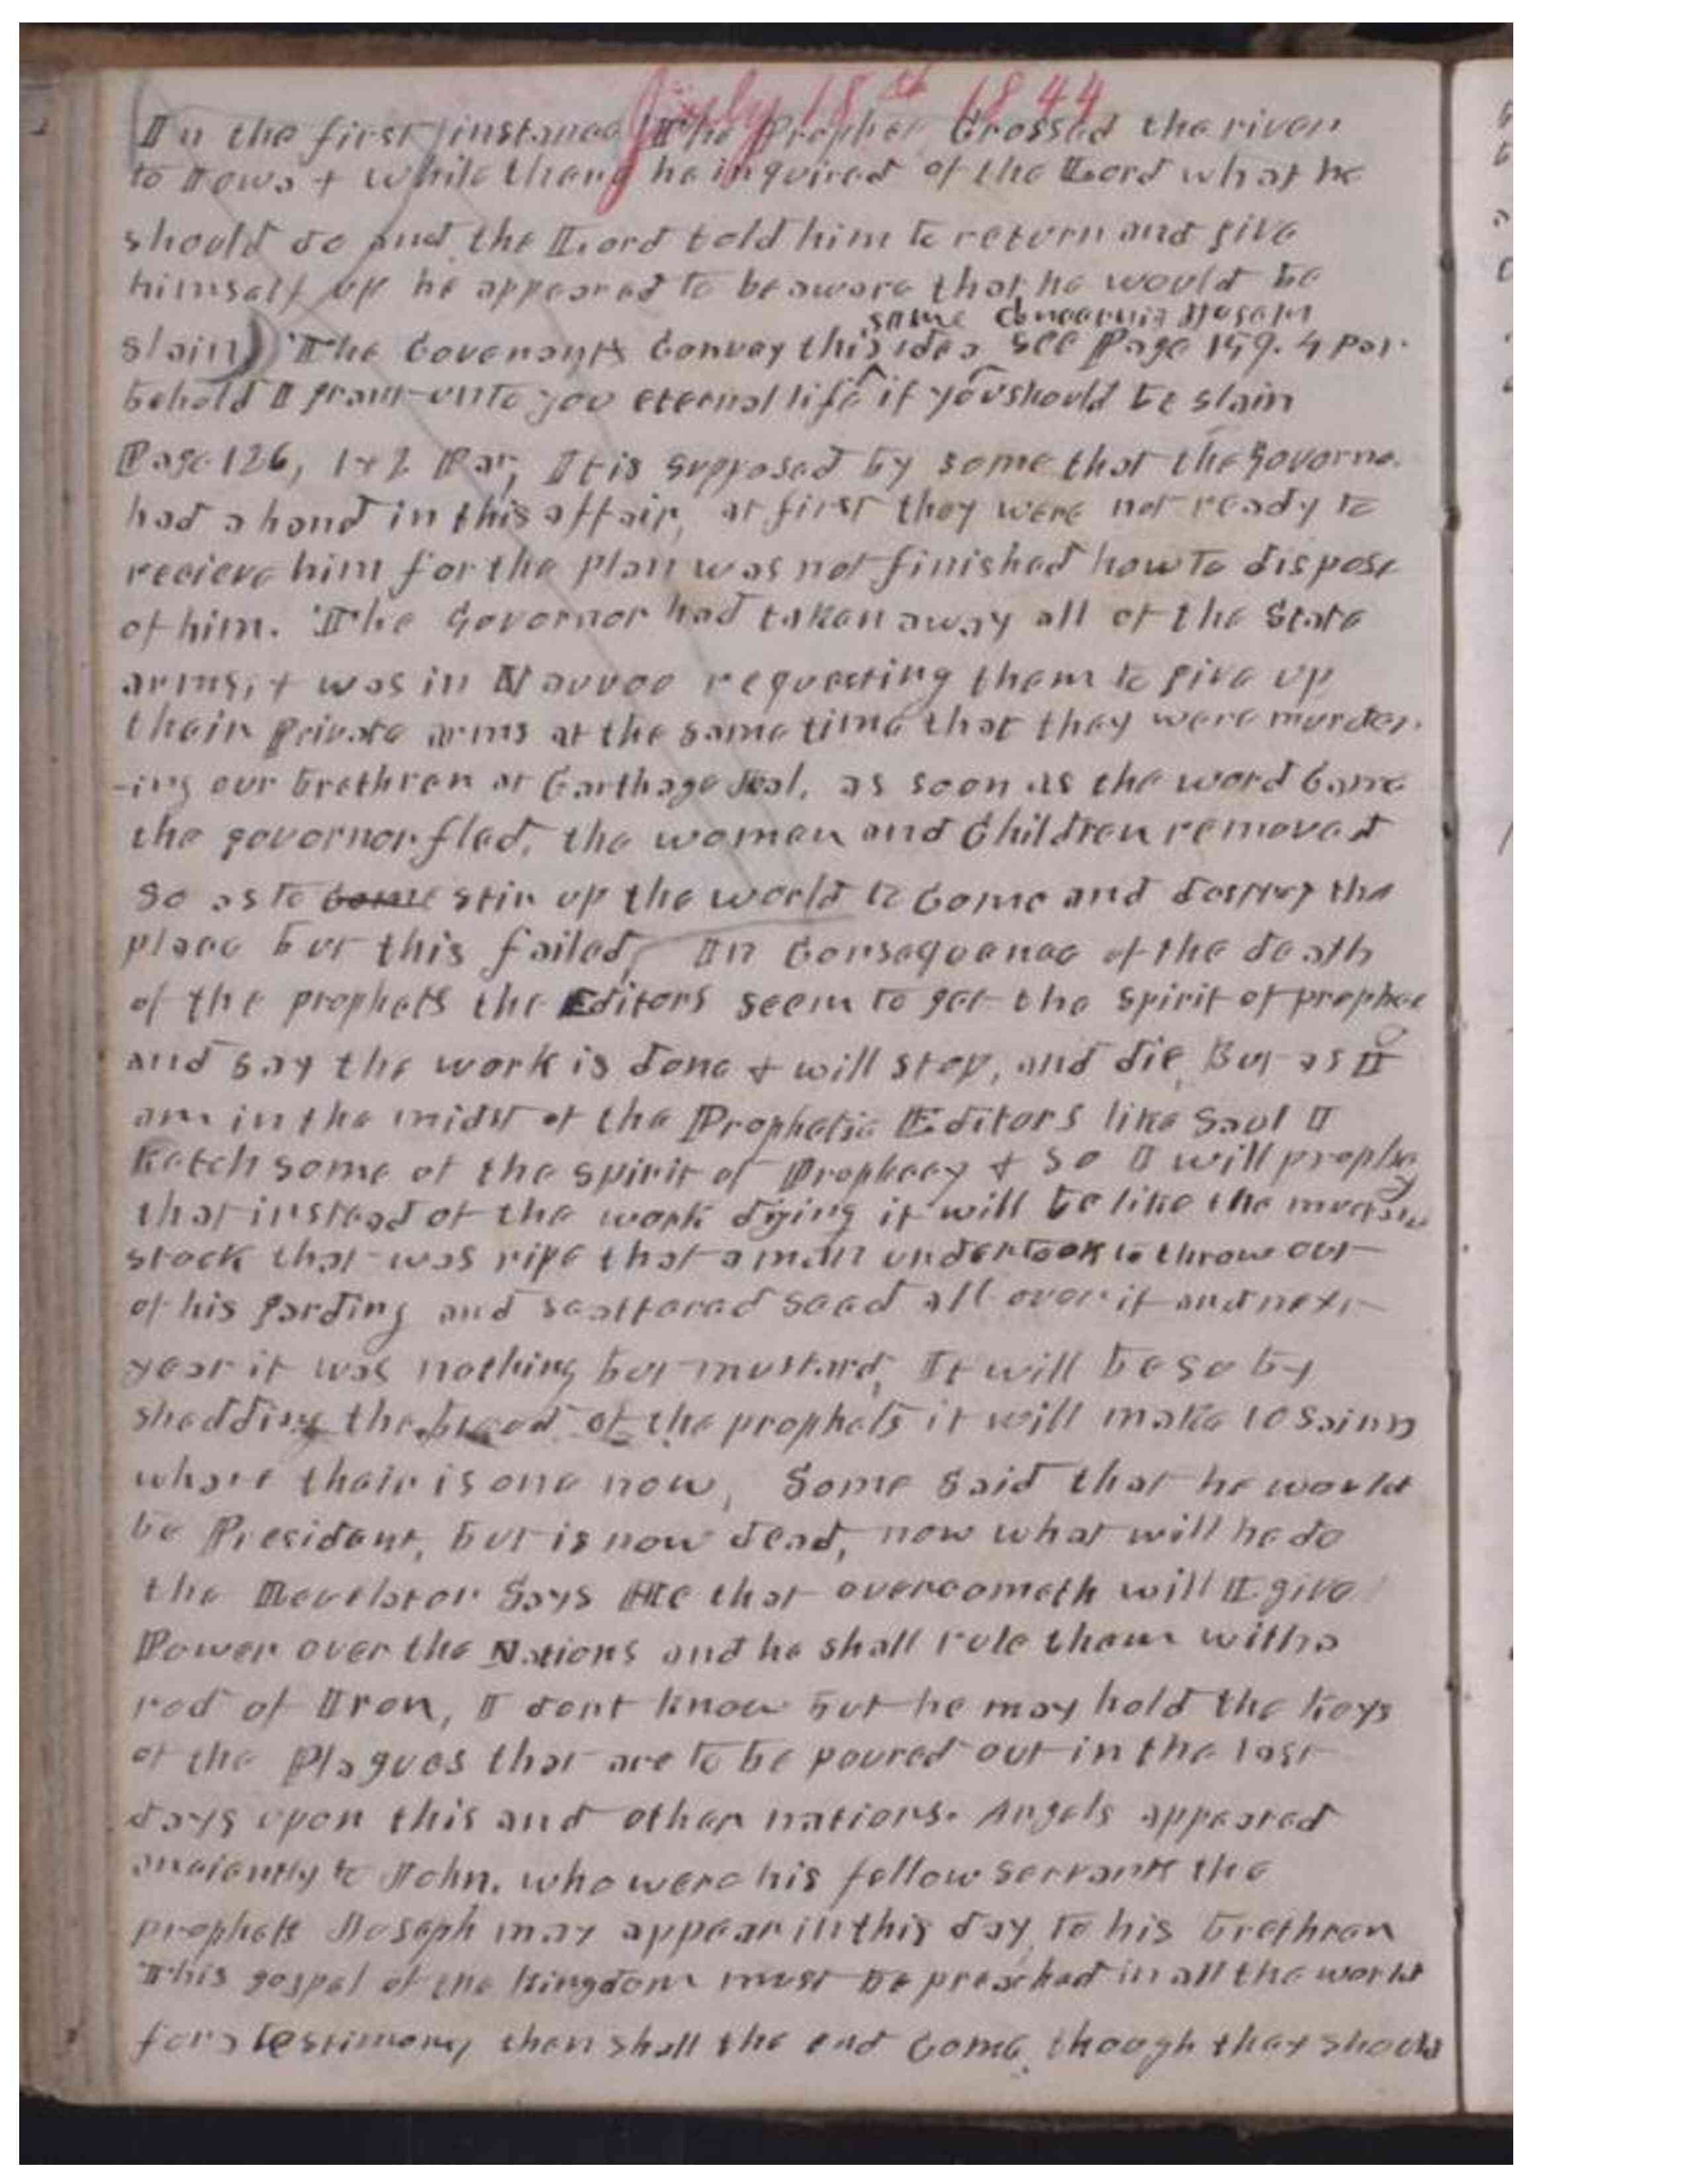 July 18th 1844
In the first instance The Prophet Crossed the river
to Iowa + while there he inquired of the Lord what he
should do and the Lord told him to return and give
himself up he appeared to be aware that he would be
same Concerning Joseph
slain) The Covenants Convey this idea See Page 159. 4 par.
behold I grant unto you eternal life if you should be slain
Page 126, 1+2 Par, It is supposed by some that the Governo.
had a hand in this affair, at first they were not ready to
recieve him for the plan was not finished how to dispose
of him. The Governor had taken away all of the State
arms, + was in Nauvoo requesting them to give up
their private arms at the same time that they were murder.
-ing our brethren at Carthage Jeal, as soon as the word Came
the governor fled, the women and Children removed
so as to Come stir up the world to Come and destroy the
place but this failed, In Consequence of the death
of the prophets the Editors seem to get the spirit of prophec
and say the work is done + will stop, and die, But as I
am in the midst of the Prophetic Editors like Saul I
Ketch some of the spirit of Prophecy + so I will prophecy
that instead of the work dying it will be like the mustard
stock that was ripe that a man undertook to throw out
of his garding and scattered seed all over it and next
year it was nothing but mustard, It will be so by
shedding the blood of the prophets it will make 10 Saints
where their is one now, Some said that he would
be President, but is now dead, now what will he do
the Revelator Says He that overcometh will I give
Power over the Nations and he shall rule them with a
rod of Iron, I dont know but he may hold the keys
of the Plagues that are to be poured out in the last
days upon this and other nations. Angels appeared
anciently to John. who were his fellow servants the
prophets Joseph may appear in this day, to his brethren
This gospel of the kingdom must be preached in all the world
for a testimony then shall the end Come, though they should